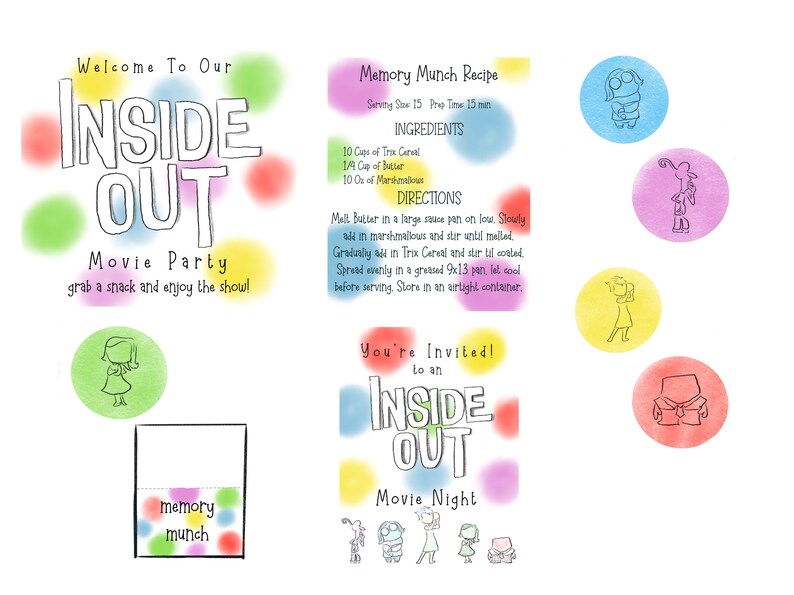 Welcome To Our
INSIDE
OUT
Movie Party
grab a snack and enjoy the show!
Memory Munch Recipe
Serving Size: 15 Prep Time: 15 min
INGREDIENTS
10 Cups of Trix Cereal
1/4 Cup of Butter
10 Oz of Marshmallows
DIRECTIONS
Melt Butter in a large sauce pan on low. Slowly
add in marshmallows and stir until melted.
Gradually add in Trix Cereal and stir til coated.
Spread evenly in a greased 9x13 pan, let cool
before serving. Store in an airtight container.
You're Invited!
to an
INSIDE
OUT
Movie Night
memory
munch